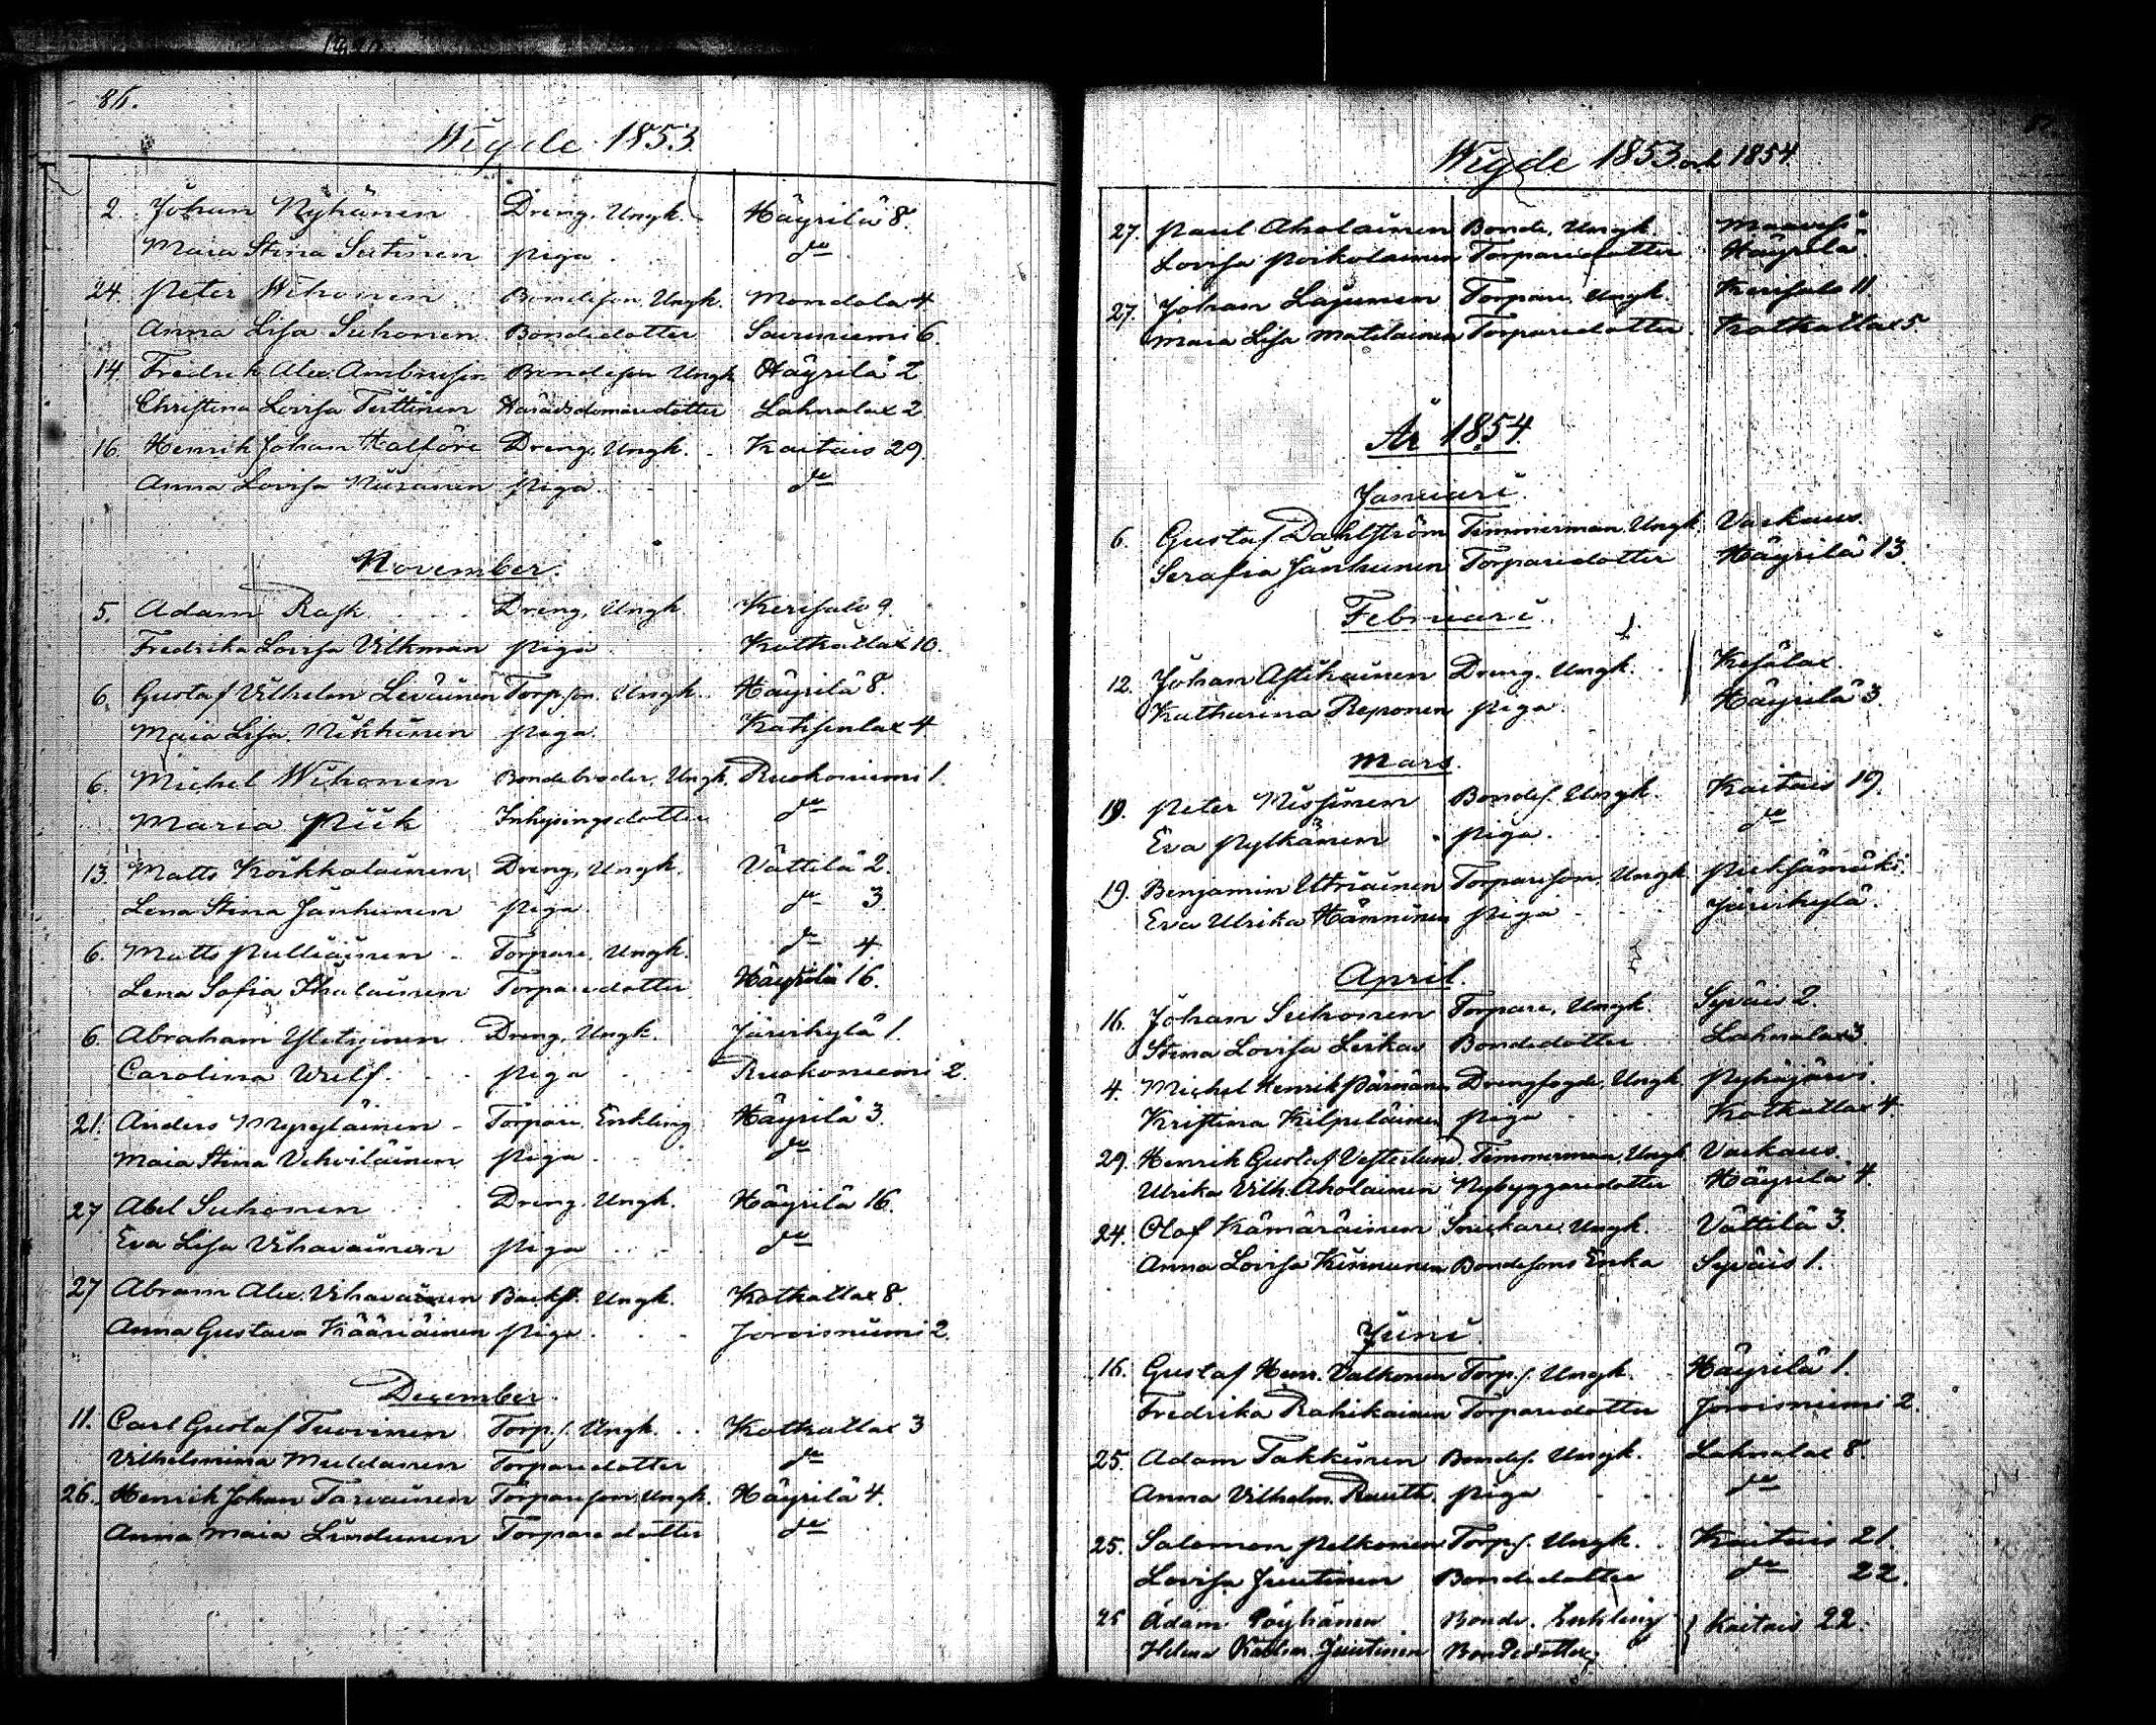 86.
Wigde 1853
2. Johan Nyhänen Dreng, Ungk. Häyrilä 8.
Maia Stina Sutinen piga do
24. Peter Wihonen Bondeson, Ungk. Mondola 4.
Anna Lisa Suhonen Bondedotter Savuniemi 6.
14. Fredrik Alex. Bondeson Ungk Häyrilä 2
Christina Lovisa Terttinen Häradsdomaredotter Lahnalax 2.
16. Henrik Johan Dreng, Ungk. Kaitais 29.
Anna Lovisa piga. do
November.
5. Adam Rask Dreng, Ungk. Kerisalo 9.
Fredrika Lovisa Vilkman piga Kotkatlax 10.
6. Gustaf Vilhelm Leväinen Torp.son. Ungk. Häyrilä 8.
Maia Lisa Nikkinen piga. Katisenlax 4
6. Michel Wihonen Bondebroder. Ungk. Ruokoniemi 1.
Maria Piik Inhysingsdotter do
13. Matts Koikkalainen Dreng, Ungk. Vättilä 2.
Lena Stina Janhunen piga do 3.
6. Matts Pulliainen Torpare. Ungk. do 4
Lena Sofia Ihalainen Torparedotter Häyrilä 16.
6. Abraham Dreng, Ungk. Järvikylä 1.
Carolina Wulf. piga Ruokoniemi 2.
21. Anders Myyryläinen Torpare. Enkling Häyrilä 3.
Maia Stina Vehviläinen piga do
27 Abel Suhonen Dreng, Ungk. Häyrilä 16.
Eva Lisa Vihavainen piga do
27 Abram Alex. Vihavainen Ungk. Kotkatlax 8.
Anna Gustava Kääriäinen piga Joroisniemi 2.
December.
11. Carl Gustaf Tuovinen Torp.s. Ungk. Kotkatlax 3
Vilhelmina Torparedotter do
26. Henrik Johan Tarvainen Torpareson, Ungk. Häyrilä 4.
Anna Maia Lindunen Torparedotter do
Wigde 1853 och 1854
27. Paul Aholainen Bonde, Ungk. Maavesi
Lovisa Poikolainen Torparedotter Häyrilä.
27. Johan Lajunen Torpare, Ungk. Kerisalo 11.
Maia Lisa Matilainen Torparedotter. Kotkatlax 5
År 1854.
Januari.
6. Gustaf Dahlström Timmerman. Ungk. Varkaus.
Serafia Janhunen Torparedotter Häyrilä 13.
Februari.
12. Johan Astikainen Dreng. Ungk. Kesälax.
Katharina Reponen piga Häyrilä 3.
Mars.
19. Peter Nissinen Bondes. Ungk. Kaitais 19.
Eva Pylkänen piga. do
19. Benjamin Utriainen Torpareson, Ungk. Pieksämäki.
Eva Ulrika Hänninen piga Järvikylä.
April.
16. Johan Suhonen Torpare, Ungk. Syväis 2.
Stina Lovisa Leskas Bondedotter Lahnalax 3.
4. Michel Henrik Pärnänen Drengfogde, Ungk. Pyhäjärvi.
Kristina Kilpeläinen piga Kotkatlax 4.
29. Henrik Gustaf Vesterlund. Timmerman, Ungk Varkaus.
Ulrika Vilh. Aholainen Nybyggaredotter Häyrilä 4.
24. Olof Kämäräinen Snickare, Ungk. Vättilä 3.
Anna Lovisa Kinnunen Bondesons Enka Syväis 1.
Juni.
16. Gustaf Henr. Valkonen Torp.s. Ungk. Häyrilä 1.
Fredrika Rahikainen Torparedotter Joroisniemi 2.
25. Adam Takkinen Bondes. Ungk. Lahnalax 8.
Anna Vilhelm. Rauth. piga do
25. Salomon Pelkonen Torp.s. Ungk. Kaitais 21.
Lovisa Juutinen Bondedotter do 22.
25 Adam Pöyhönen Bonde. Enkling Kaitais 22.
Helena Kathar. Juutinen Bondedotter